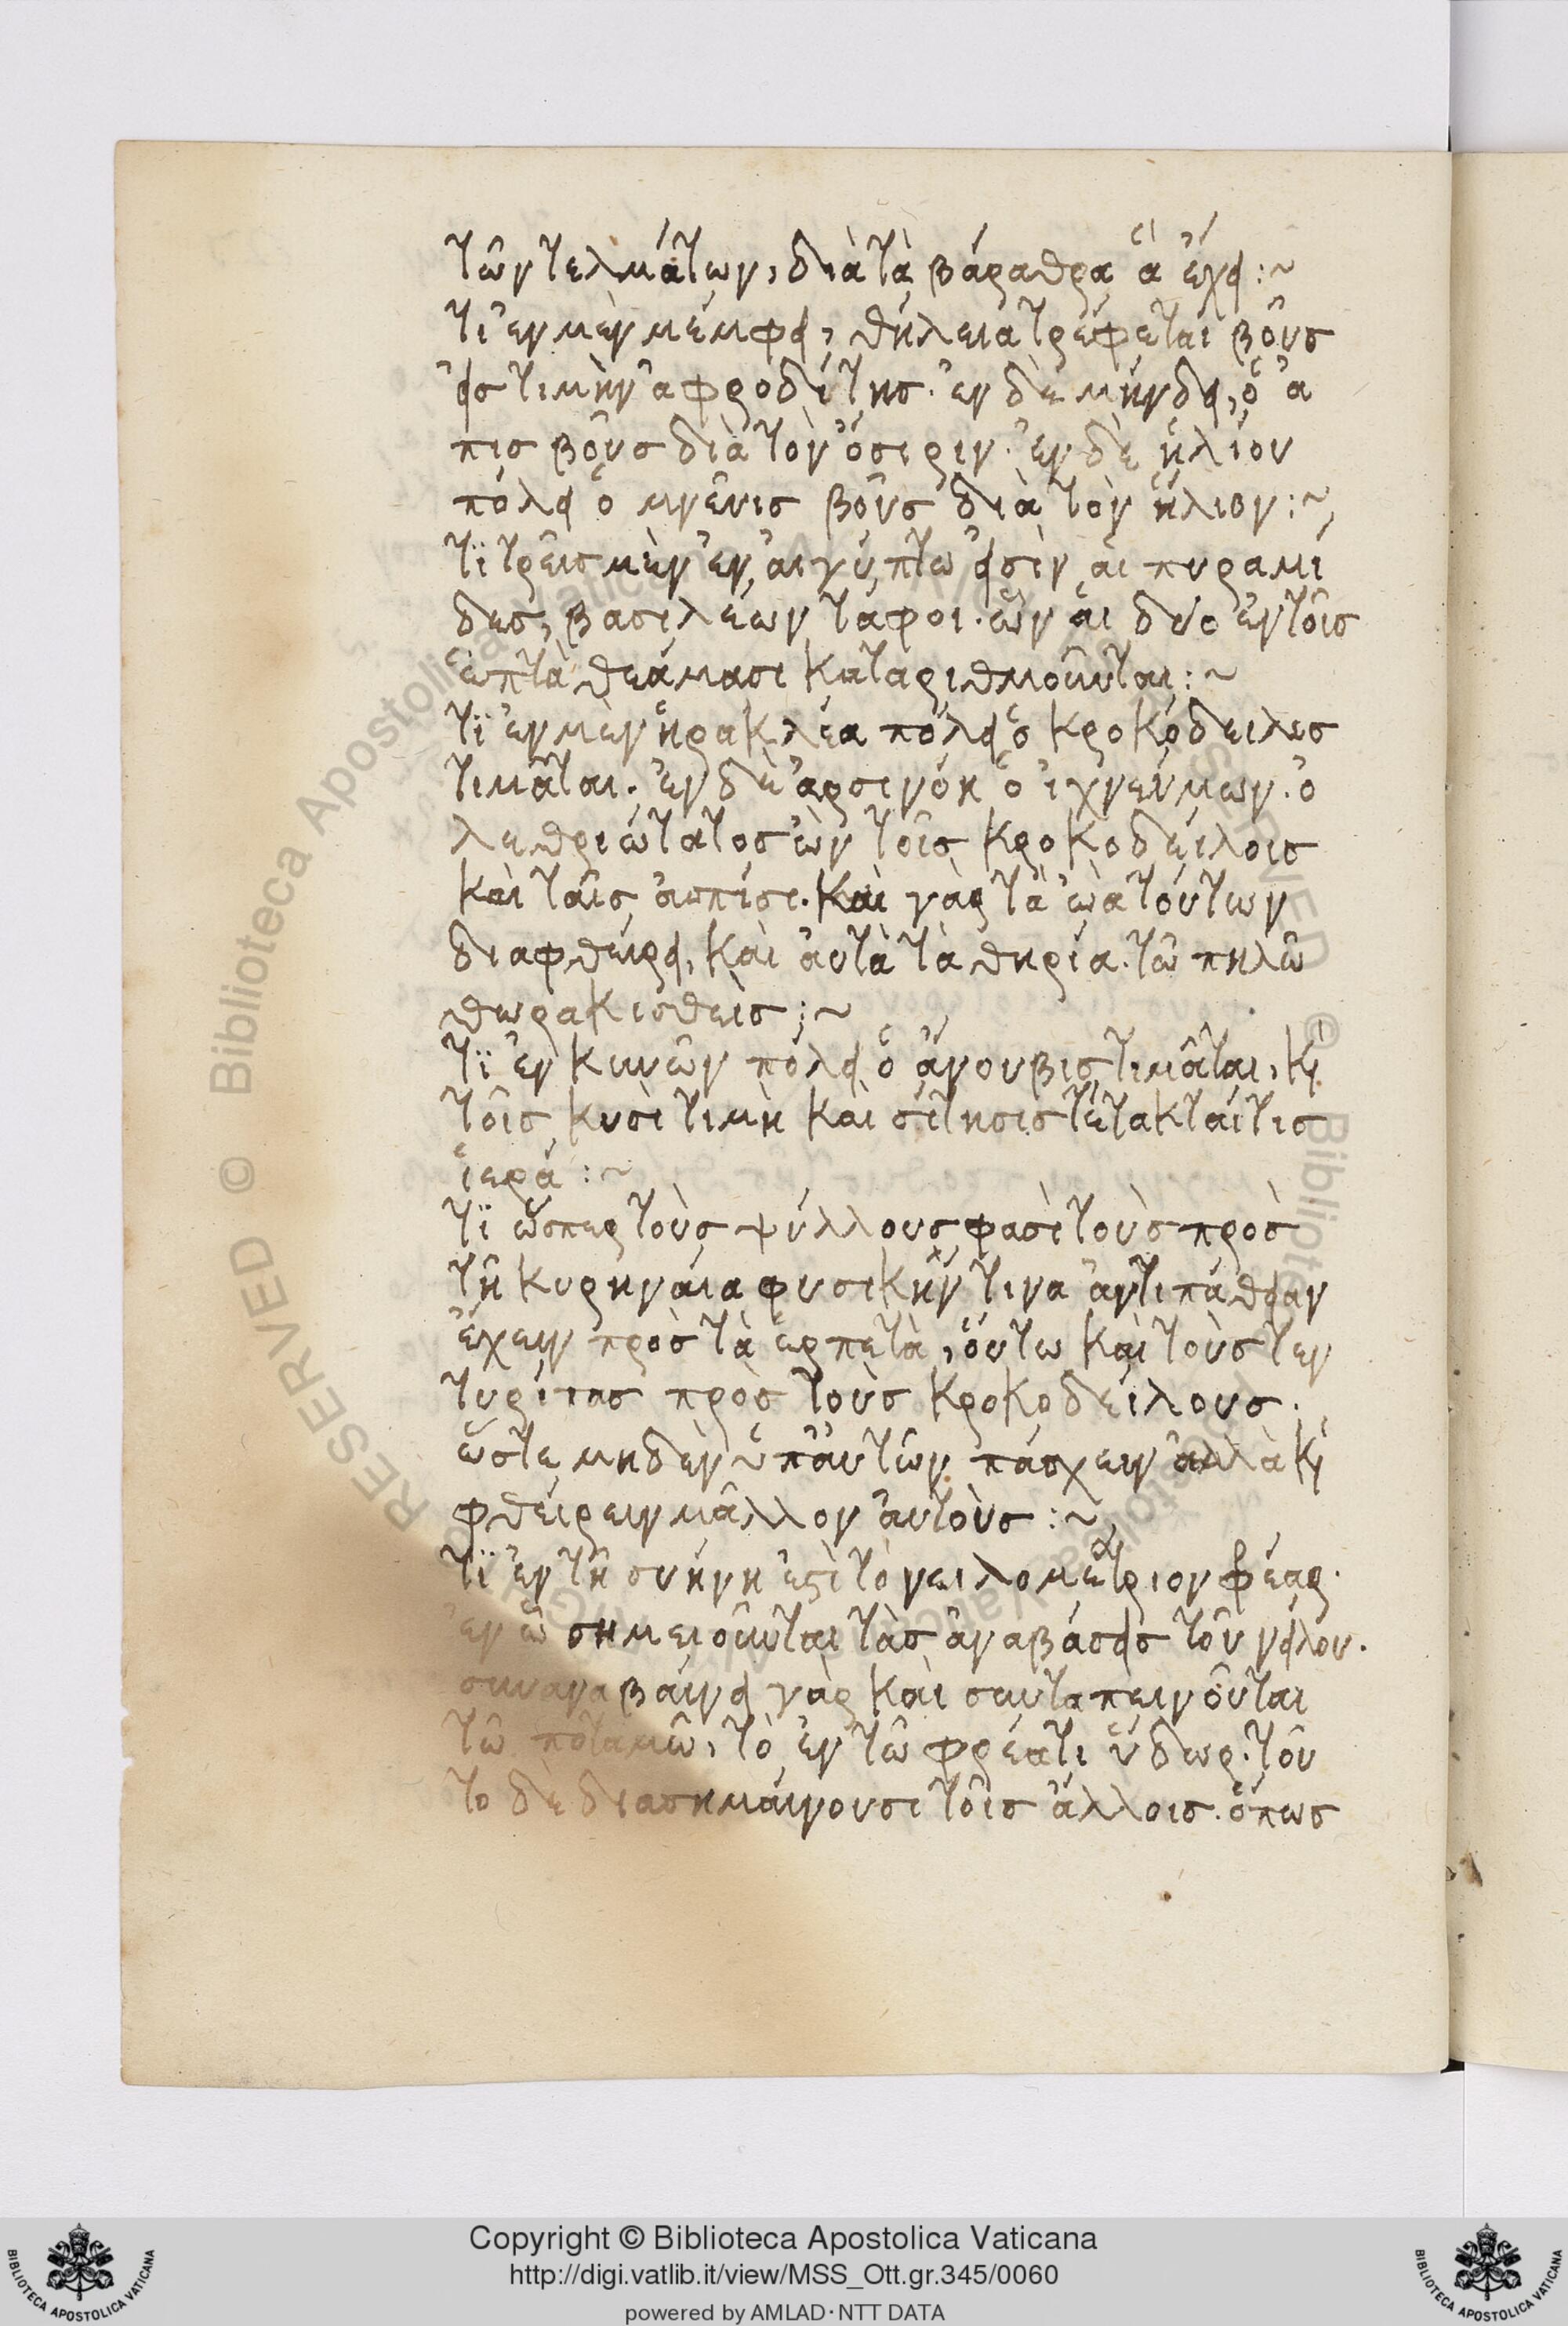 τῶν τελμάτων, διὰ τὰ βάραθρα ἃ ἔχει :~
Τι ἐν μὲν μέμφει, θήλεια τρέφεται βοῦς
εἰς τιμὴν ἀφροδίτης. ἐν δὲ μήνδει, ὁ ἄ
πις βοῦς διὰ τὸν ὄσιριν. ἐν δὲ ἡλίου
πόλει ὁ μνεῦις βοῦς διὰ τὸν ἥλιον :~
Τϊ τρεῖς μὲν ἐν αἰγύπτω εἰσὶν αἱ πυραμί
δες, βασιλέων τάφοι. ὧν αἱ δύο ἐν τοῖς
ἑπτὰ θεάμασι καταριθμοῦνται :~
Τϊ ἐν μὲν ἡρακλέα πόλει ὁ κροκόδειλος
τιμᾶται. ἐν δὲ ἀρσινόη ὁ ἰχνεύμων. ὀ
λεθριώτατος ὢν τοῖς κροκοδείλοις
καὶ ταῖς ἀσπίσι. καὶ γὰρ τὰ ὠὰ τούτων
διαφθείρει, καὶ αὐτὰ τὰ θηρία. τῶ πηλῶ
θωρακισθεὶς :~
Τϊ ἐν κυνῶν πόλει ὁ ἄνουβις τιμᾶται, κὶ
τοῖς κυσὶ τιμὴ καὶ σίτησις τέτακταί τις
ἱερά :~
Τϊ ὥσπερ τοὺς ψύλλους φασὶ τοὺς πρὸς
τῆ κυρηναία φυσικήν τινα ἀντιπάθειαν
ἔχειν πρὸς τὰ ἑρπετὰ, οὕτω καὶ τοὺς τεν
τυρίτας πρὸς τοὺς κροκοδείλους.
ὥστε μηδὲν ὑπ' αὐτῶν πάσχειν ἀλλὰ κὶ
φθείρειν μᾶλλον αὐτοὺς :~
Τϊ ἐν τῆ συήνη ἐστὶ τὸ νειλομέτριον φρέαρ.
ἐν ὧ σημειοῦνται τὰς ἀναβάσεις τοῦ νείλου.
συναναβαίνει γὰρ καὶ συνταπεινοῦται
τῶ ποταμῶ, τὸ ἐν τῶ φρέατι ὕδωρ. τοῦ
το δὲ διασημαίνουσι τοῖς ἄλλοις. ὅπως
Copyright © Biblioteca Apostolica Vaticana
http://digi.vatlib.it/view/MSS_Ott.gr.345/0060
powered by AMLAD · NTT DATA